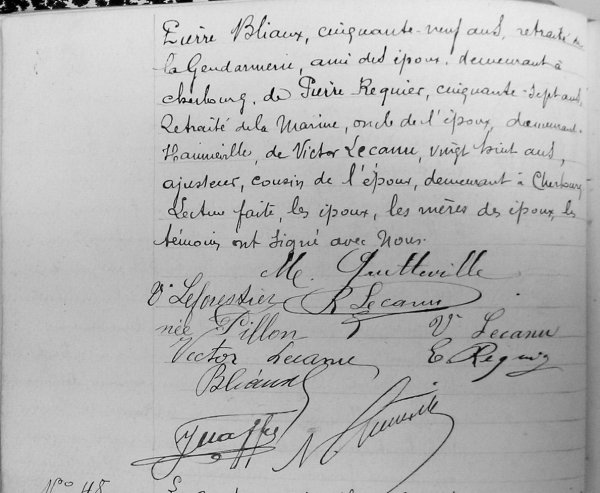 Pierre Bliaux, cinquante-neuf ans, retraité de
la Gendarmerie, ami des époux, demeurant à
Cherbourg, de Pierre Requier, cinquante-sept ans,
Retraité de la Marine, oncle de l'époux, demeurant
Hainneville, de Victor Lecanu, vingt huit ans,
ajusteur, cousin de l'époux, demeurant à Cherbourg
Lecture faite, les époux, les mères des époux, les
témoins ont signé avec Nous.
M. Quetteville
Ve Leforestier R Lecanu
née Pillon Ve Lecanu
Victor Lecanu E. Requier
Bliaux
No 48